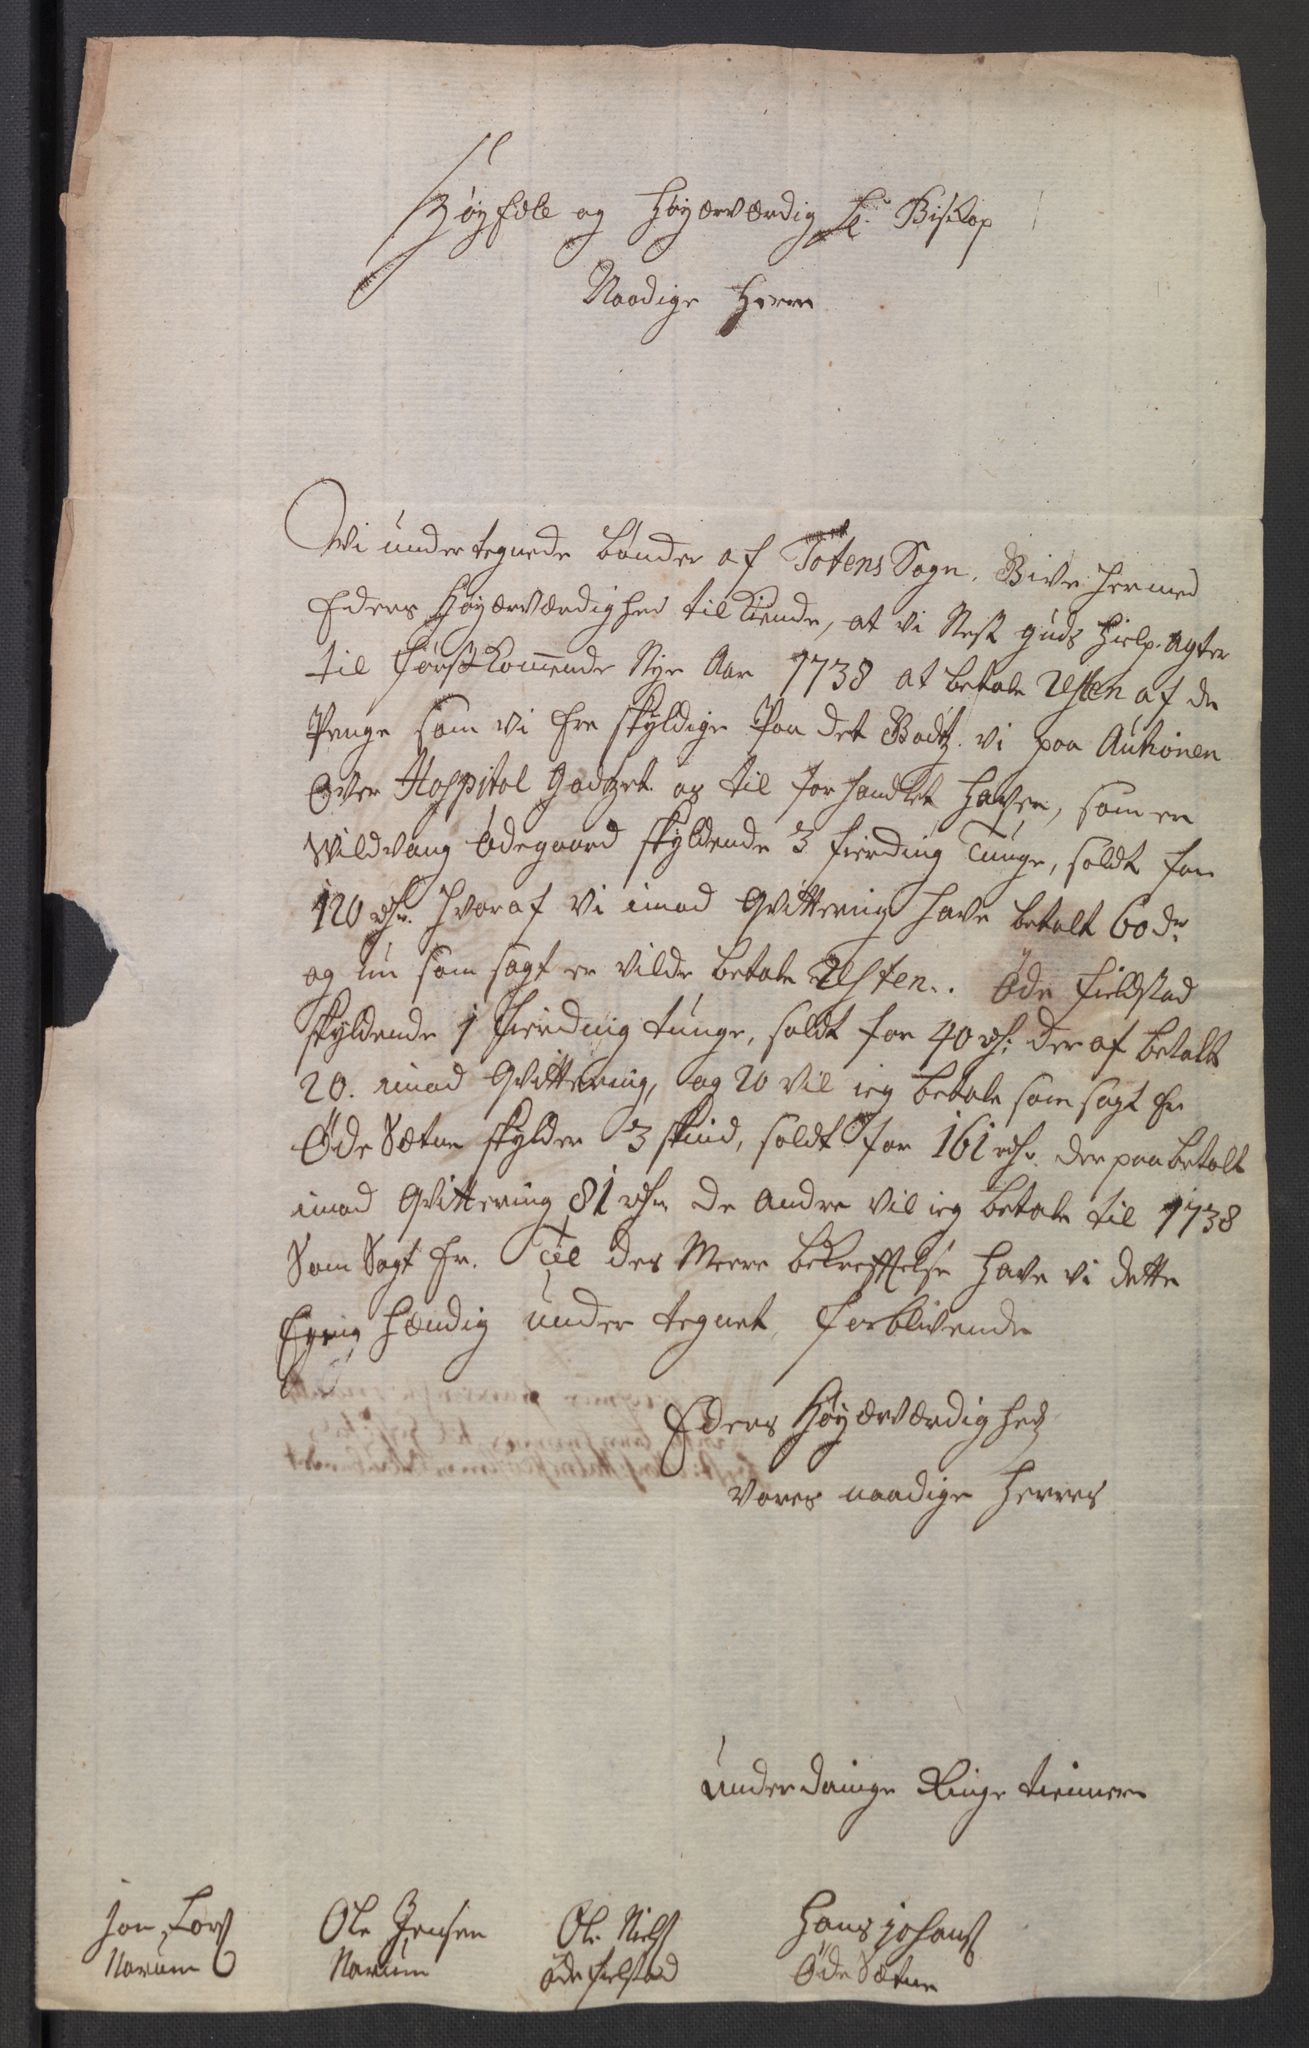 HøyEdle og Høyærværdig Hr. Biskop
Naadige Herre
Wi under tegnede bønder af Totens Sogn, Give hermed
Eders Høyærværdighed tilkiende, at vi Nest guds hielp. Agter
til først kommende Nye Aar 1738 at betale Resten af de
Penge som vi Ere skyldige Paa det Godtz. vi paa Auhionen
Over Hospitol Godtzet. os til for handlet haver, som er
Wildvang ødegaard skyldende 3 fierding Tunge, soldt for
120 rdr. hvor af vi imod Qvittering have betalt 60 dr
og nu som sagt er vilde betale Resten.. Øde fieldstad
skyldende 1 fierding tunge, soldt for 40 rdr. der af betalt
20. imod Qvittering, og 20 vil ieg betale som sagt Er
Øde Sætne skylder 3 skind, soldt for 161 rdr. der paa betalt
imod Qvittering 81 rdr De Andre vil ieg betale til 1738
Som Sagt Er. Til des Meere bekrefftelse have vi dette
Egen hændig under tegnet, forblivende
Eders Høyærværdighedz
Vores naadige Herres
underdanige Ringe tiennere
Jon Lars Ole Jensen Ole Niels Hans johans
Narum Narum øde fielstad Øde Sætne